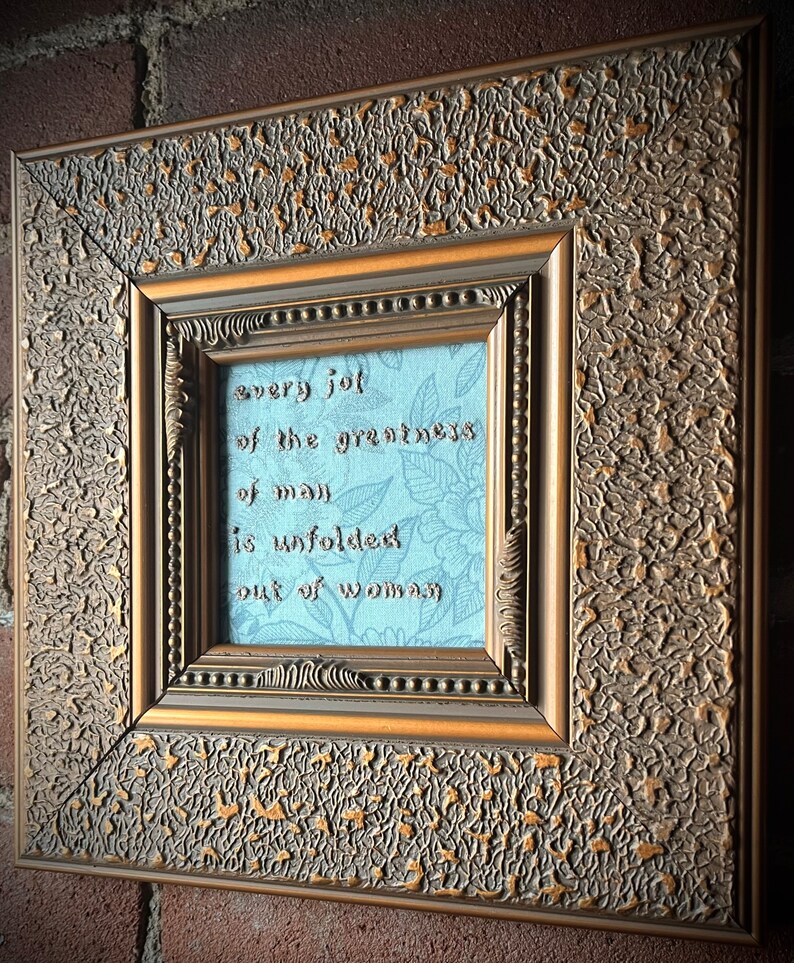 every jot
of the greatness
of man
is unfolded
out of woman